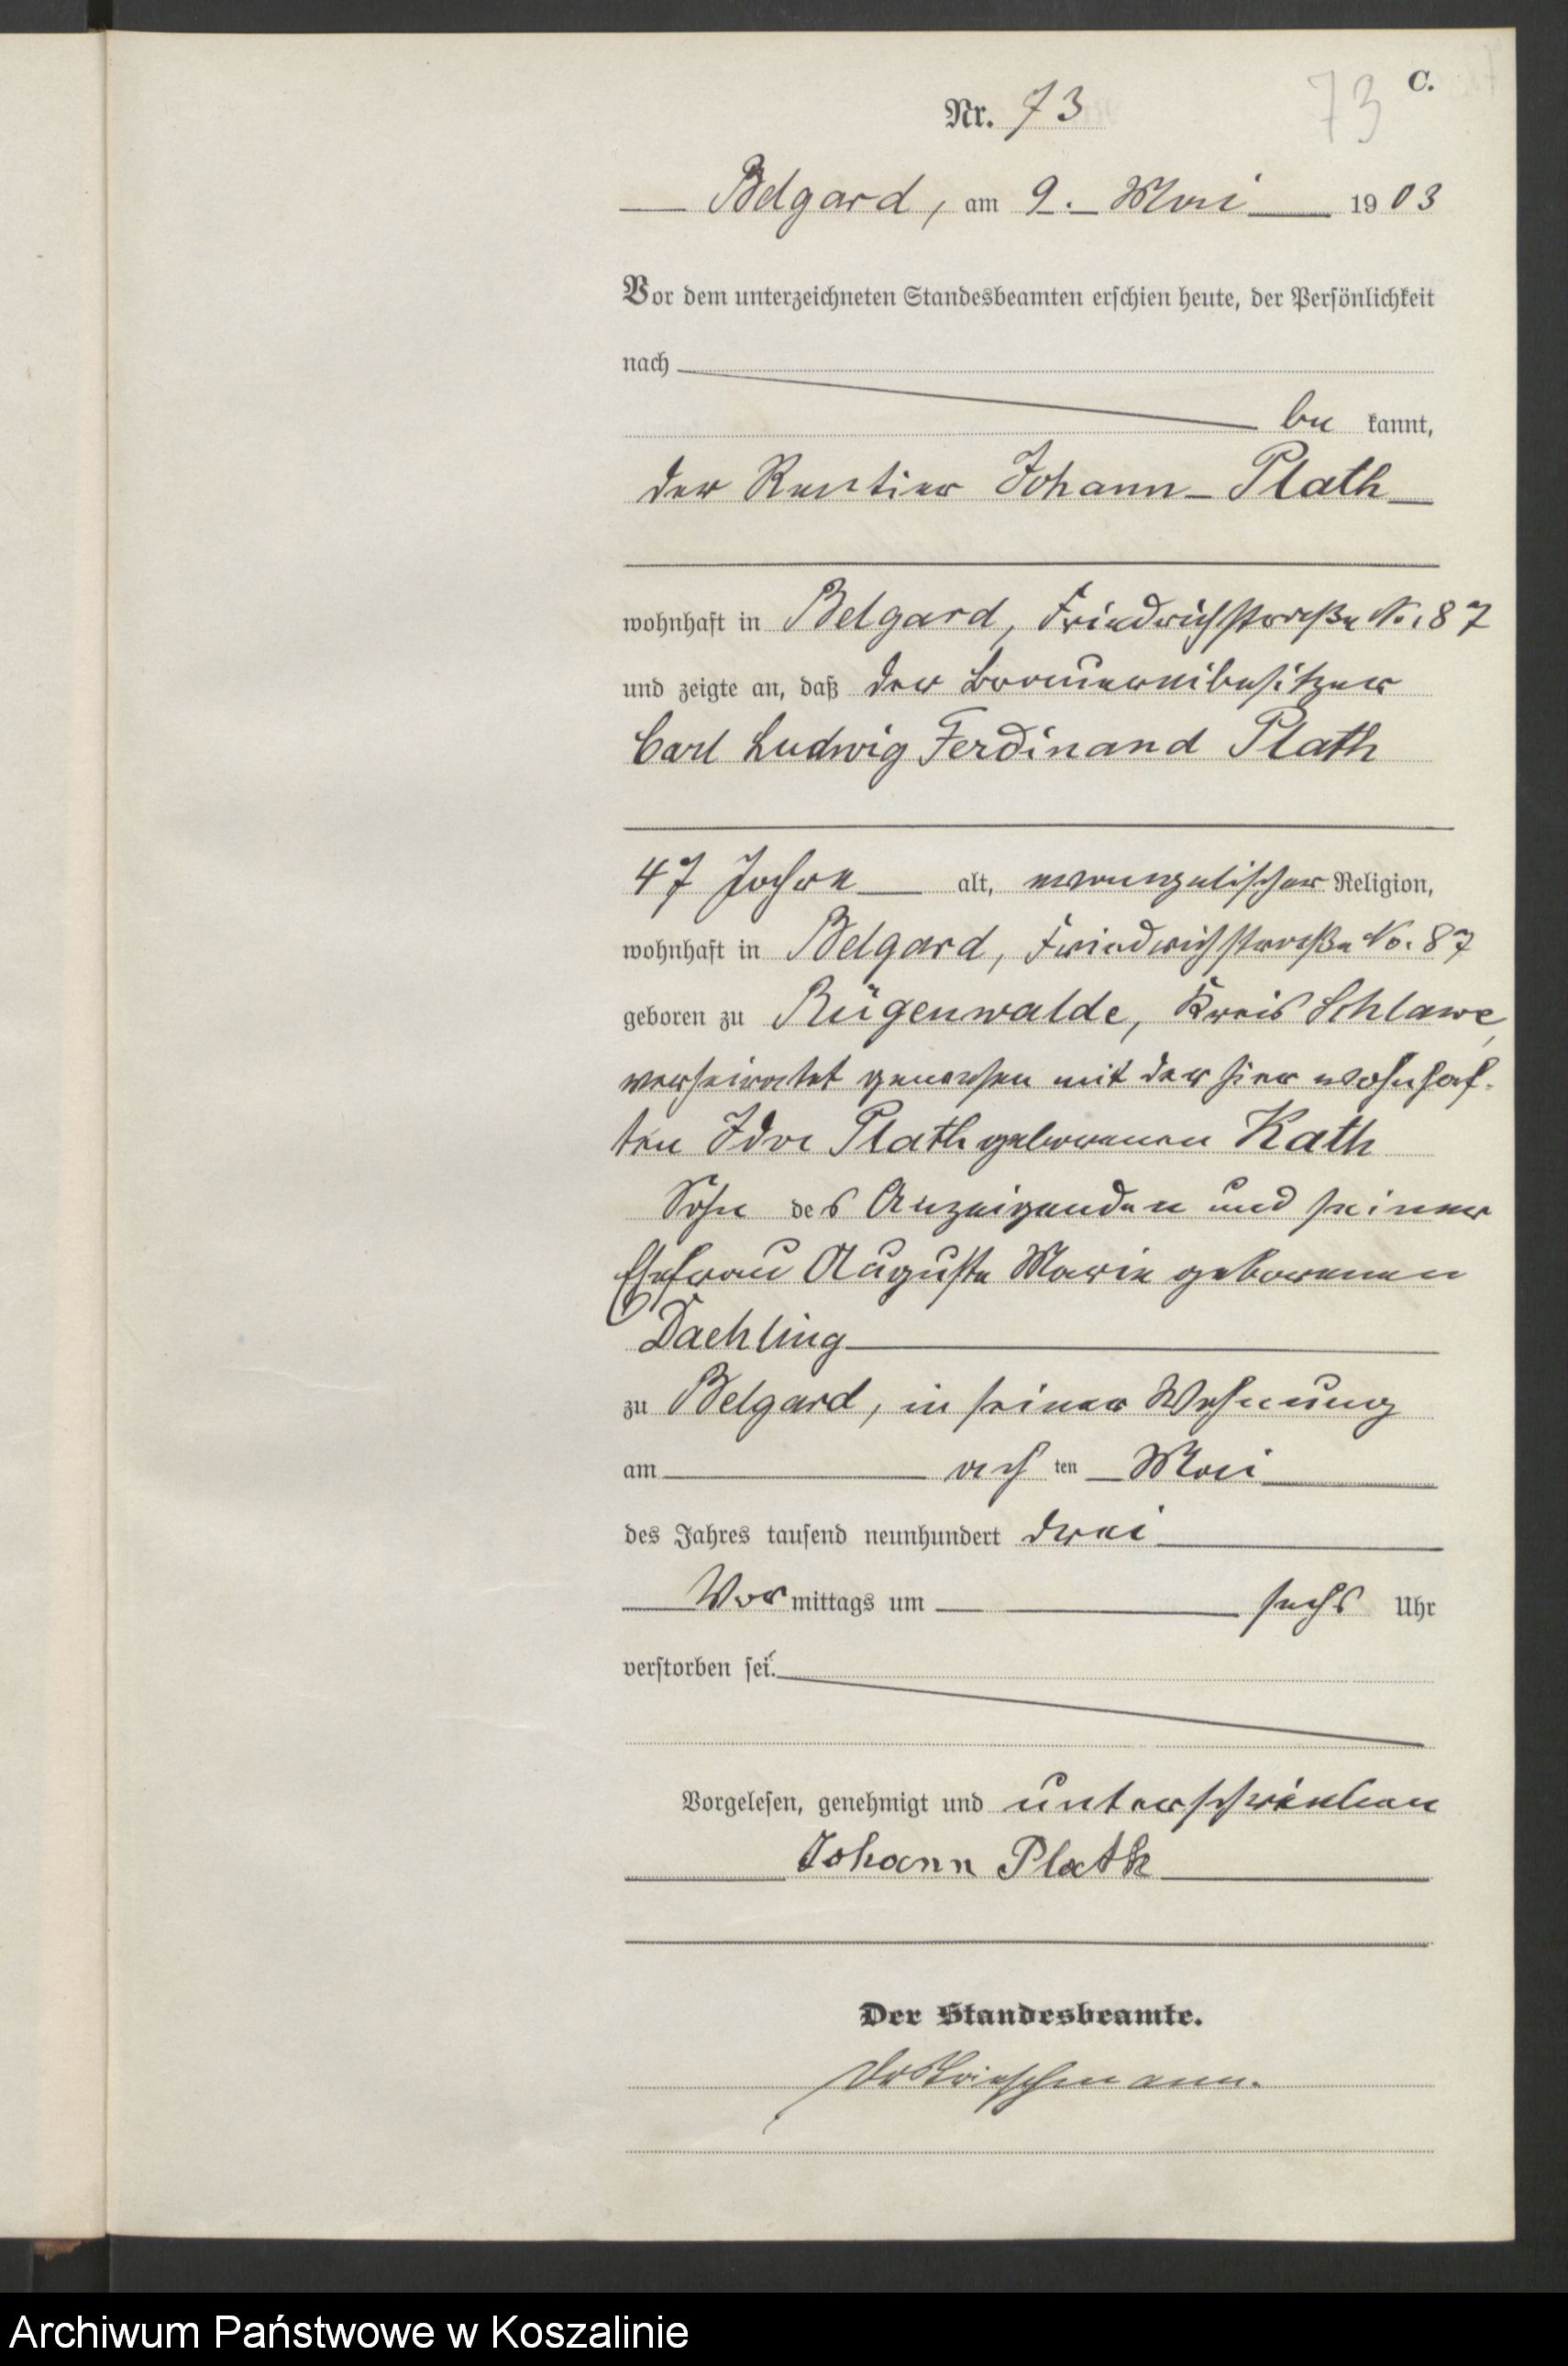 C.
Nr. 73
73
Belgard, am 9. Mai 1903
Vor dem unterzeichneten Standesbeamten erschien heute, der Persönlichkeit
nach
be kannt,
der Rentier Johann Plath
wohnhaft in Belgard, Friedrichstraße No. 87
und zeigte an, daß der Brauereibesitzer
Carl Ludwig Ferdinand Plath
47 Jahre alt, evangelischer Religion,
wohnhaft in Belgard, Friedrichstraße No. 87
geboren zu Rügenwalde, Kreis Schlawe,
verheirathet gewesen mit der hier wohnhaf-
ten Ida Plath geborenen Kath
Sohn des Anzeigenden und seiner
Ehefrau Auguste Marie geborenen
Daehling
zu Belgard, in seiner Wohnung
am ach ten Mai
des Jahres tausend neunhundert drei
Vor mittags um sechs Uhr
verstorben sei.
Vorgelesen, genehmigt und unterschrieben
Johann Plath
Der Standesbeamte.
Archiwum Państwowe w Koszalinie